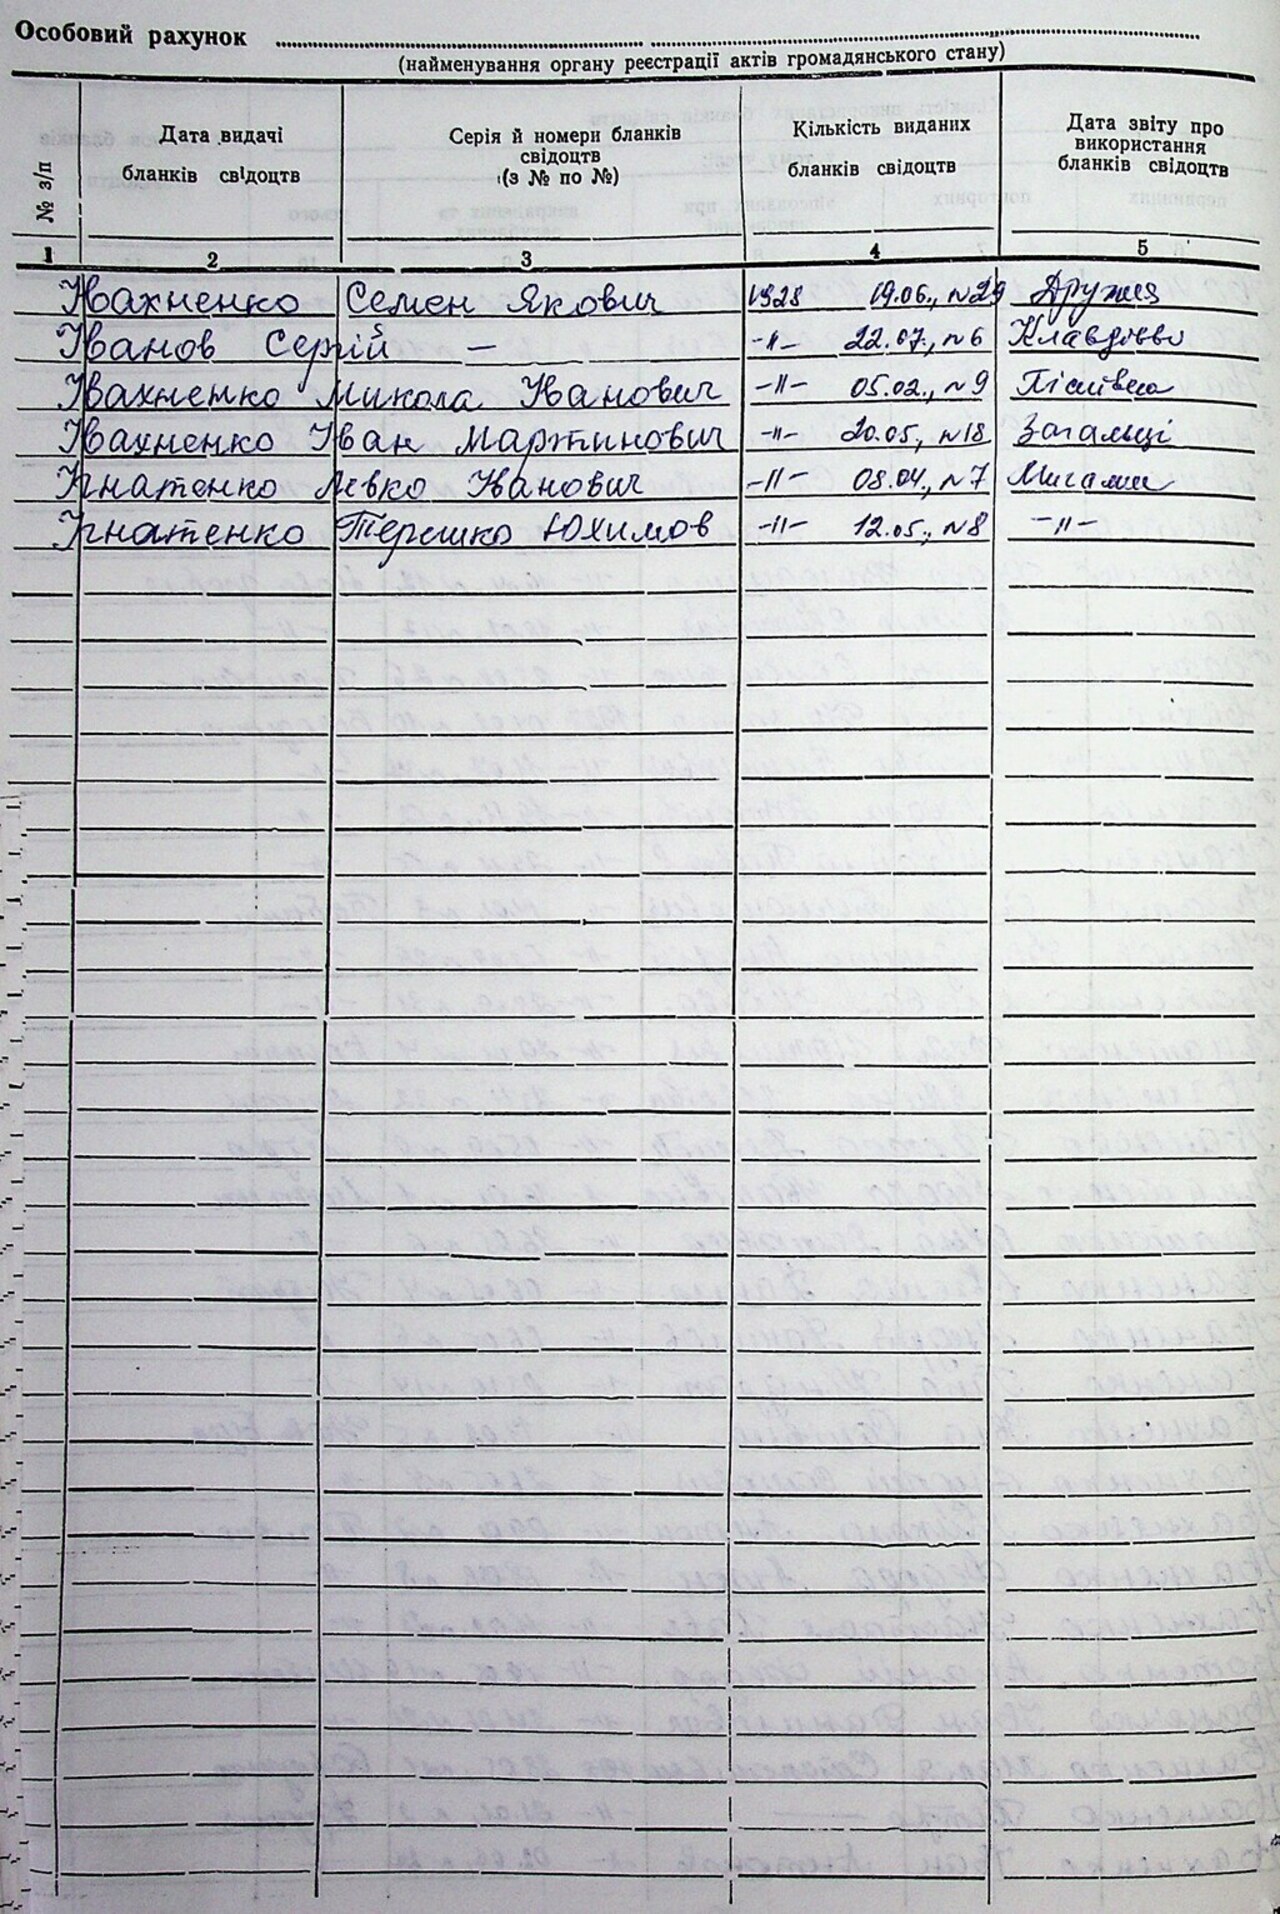 Особовий рахунок
(найменування органу реєстрації актів громадянського стану)
№ з/п
Дата видачі бланків свідоцтв
Серія й номери бланків свідоцтв (з № по №)
Кількість виданих бланків свідоцтв
Дата звіту про використання бланків свідоцтв
1 2 3 4 5
Івахненко Семен Якович 1928 19.06., №29 Дружня
Іванов Сергій — -"- 22.07., №6 Клавдієво
Івахненко Микола Іванович -"- 05.02., №9 Пісківка
Івахненко Іван Мартинович -"- 20.05., №18 Загальці
Ігнатенко Левко Іванович -"- 08.04., №7
Ігнатенко Терешко Юхимов -"- 12.05., №8 -"-